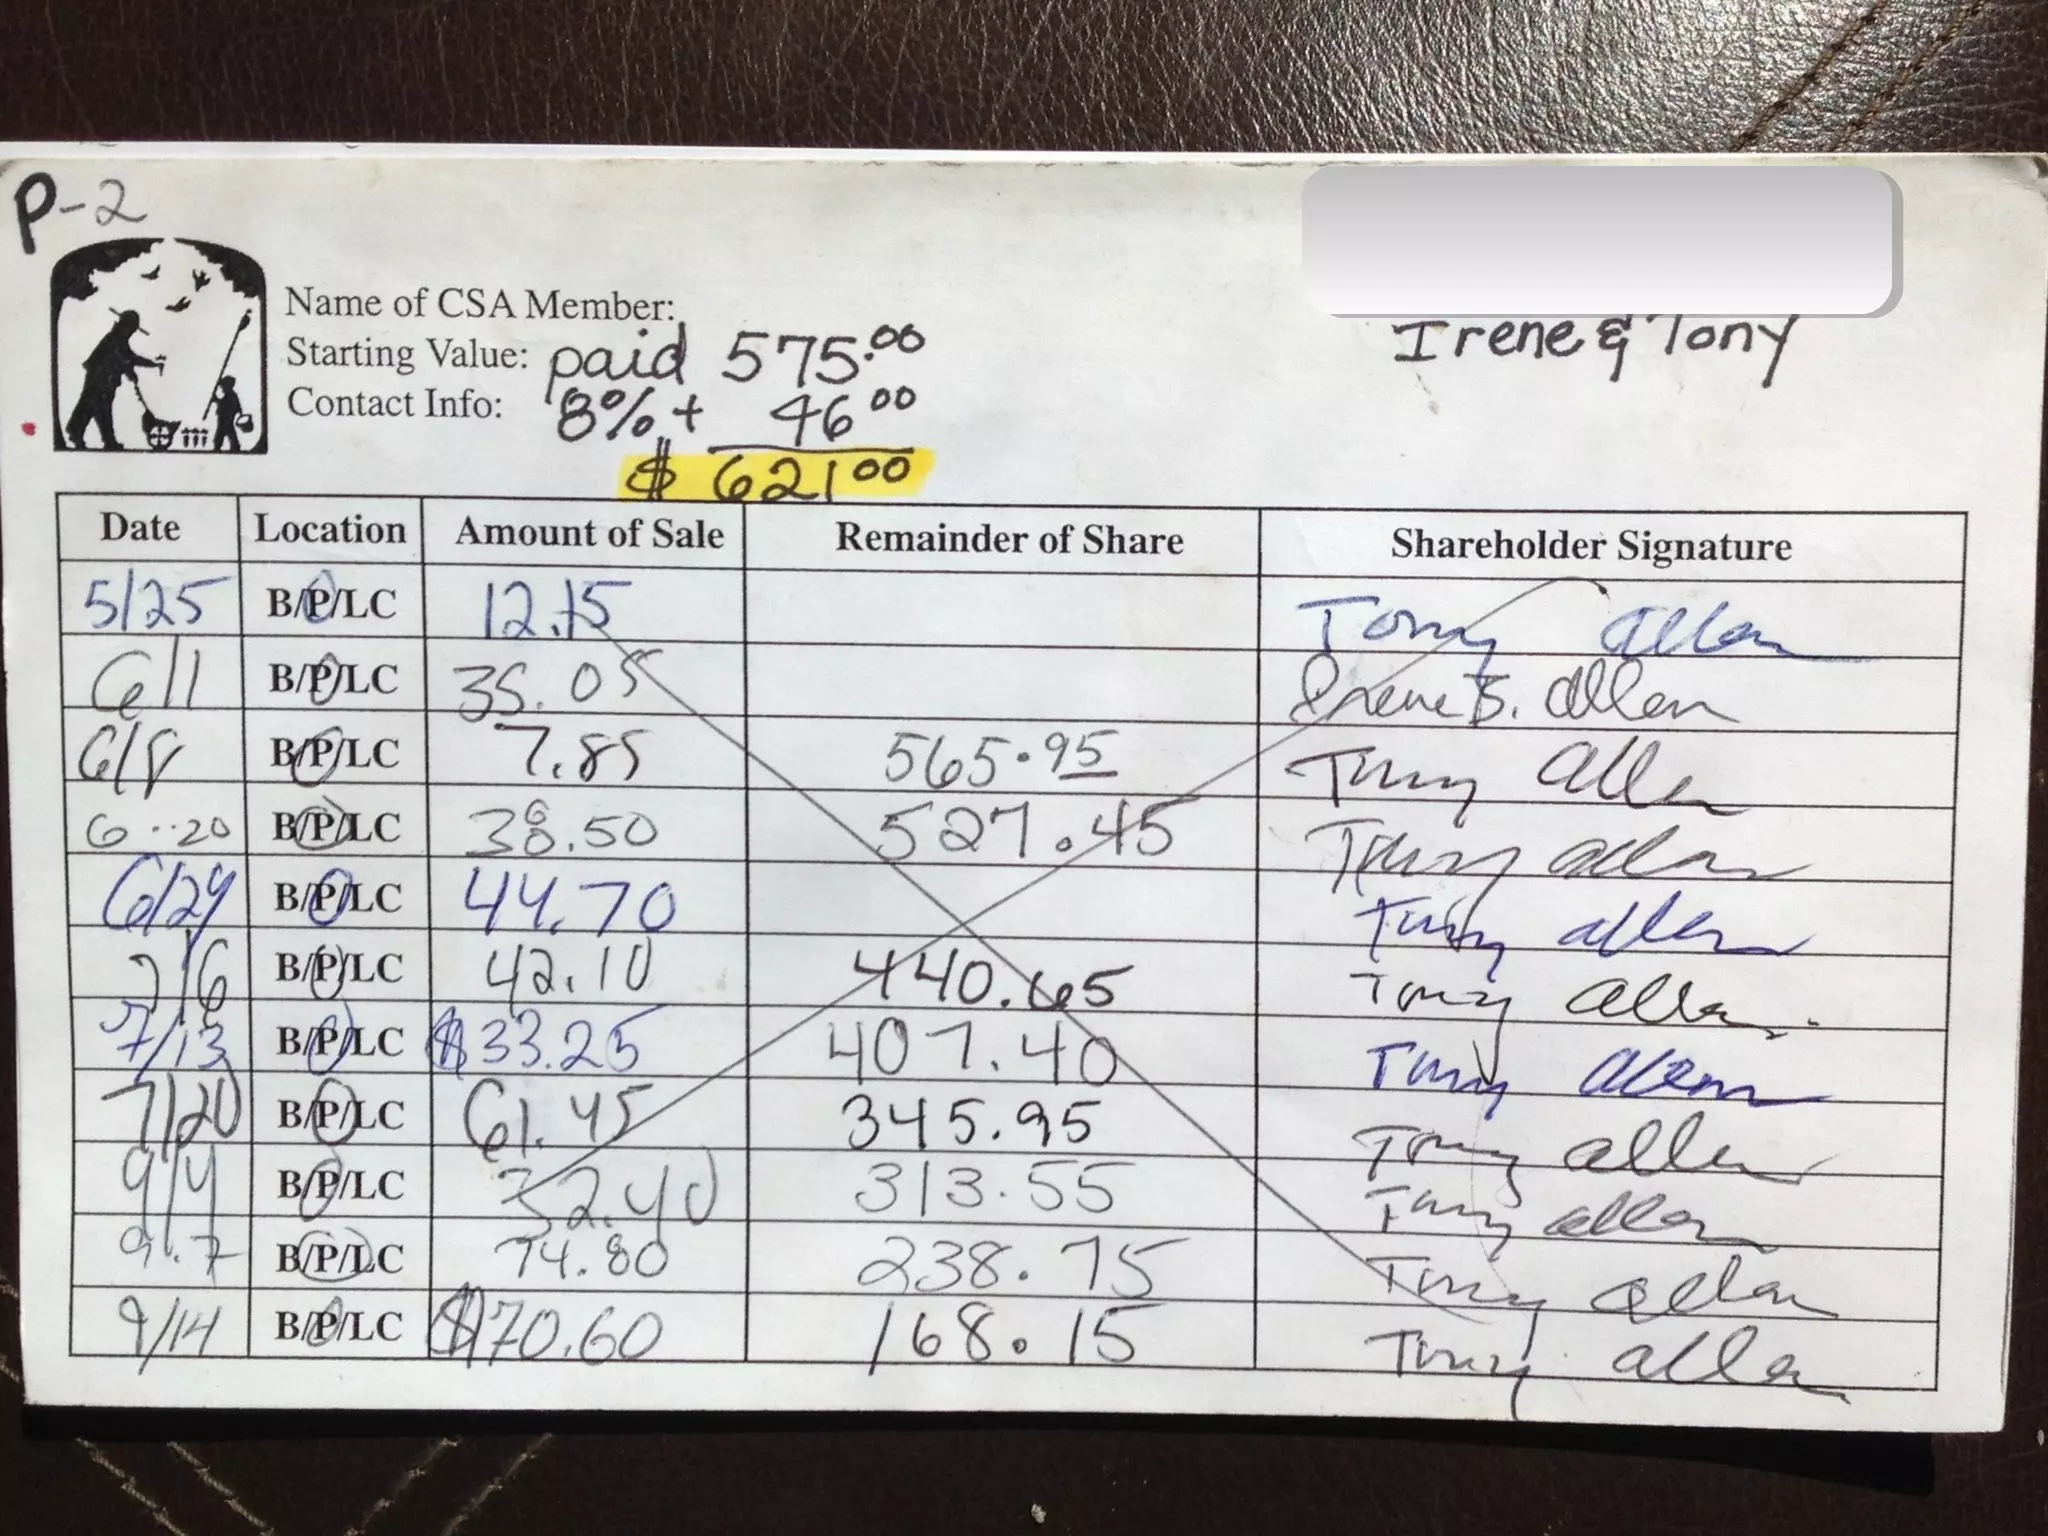 P-2
Irene & Tony
Name of CSA Member:
Starting Value: paid 575.00
Contact Info: 8% + 46 00
$ 621 00
Date Location Amount of Sale Remainder of Share Shareholder Signature
5/25 B/P/LC 12.15 Tony Allen
6/1 B/P/LC 35.05 Irene S. Allen
6/8 B/P/LC 7.85 565.95 Tony Allen
6-20 B/P/LC 38.50 527.45 Tony Allen
6/29 B/P/LC 44.70 Tony Allen
7/6 B/P/LC 42.10 440.65 Tony Allen
7/13 B/P/LC $33.25 407.40 Tony Allen
7/20 B/P/LC 61.45 345.95 Tony Allen
9/4 B/P/LC 32.40 313.55 Tony Allen
9.7 B/P/LC 74.80 238.75 Tony Allen
9/14 B/P/LC $70.60 168.15 Tony Allen